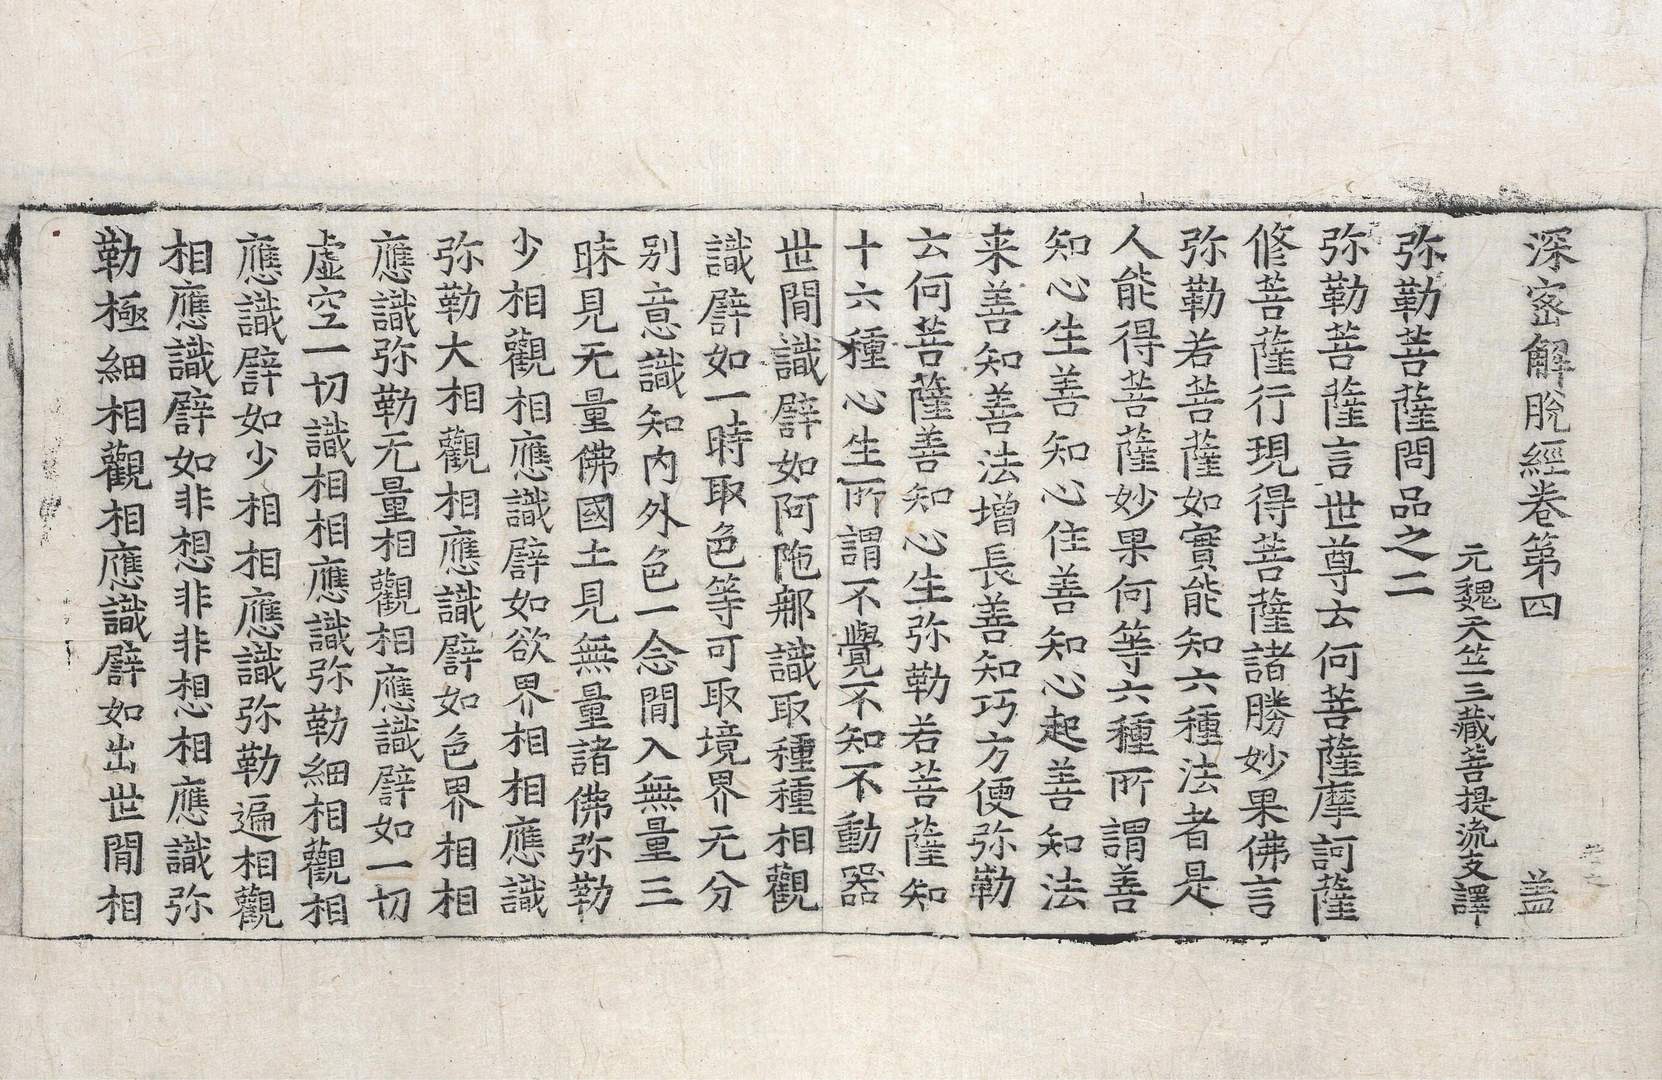 深密解脫經卷第四 盖
元魏天竺三藏菩提流支譯
弥勒菩薩問品之二
弥勒菩薩言世尊云何菩薩摩訶薩
修菩薩行現得菩薩諸勝妙果佛言
弥勒若菩薩如實能知六種法者是
人能得菩薩妙果何等六種所謂善
知心生善知心住善知心起善知法
来善知善法增長善知巧方便弥勒
云何菩薩善知心生弥勒若菩薩知
十六種心生所謂不覺不知不動器
世間識譬如阿陁那識取種種相觀
識譬如一時取色等可取境界无分
别意識知內外色一念間入無量三
昧見无量佛國土見無量諸佛弥勒
少相觀相應識譬如欲界相相應識
弥勒大相觀相應識譬如色界相相
應識弥勒无量相觀相應識譬如一切
虛空一切識相相應識弥勒細相觀相
應識譬如少相相應識弥勒遍相觀
相應識譬如非想非非想相應識弥
勒極細相觀相應識譬如出世間相